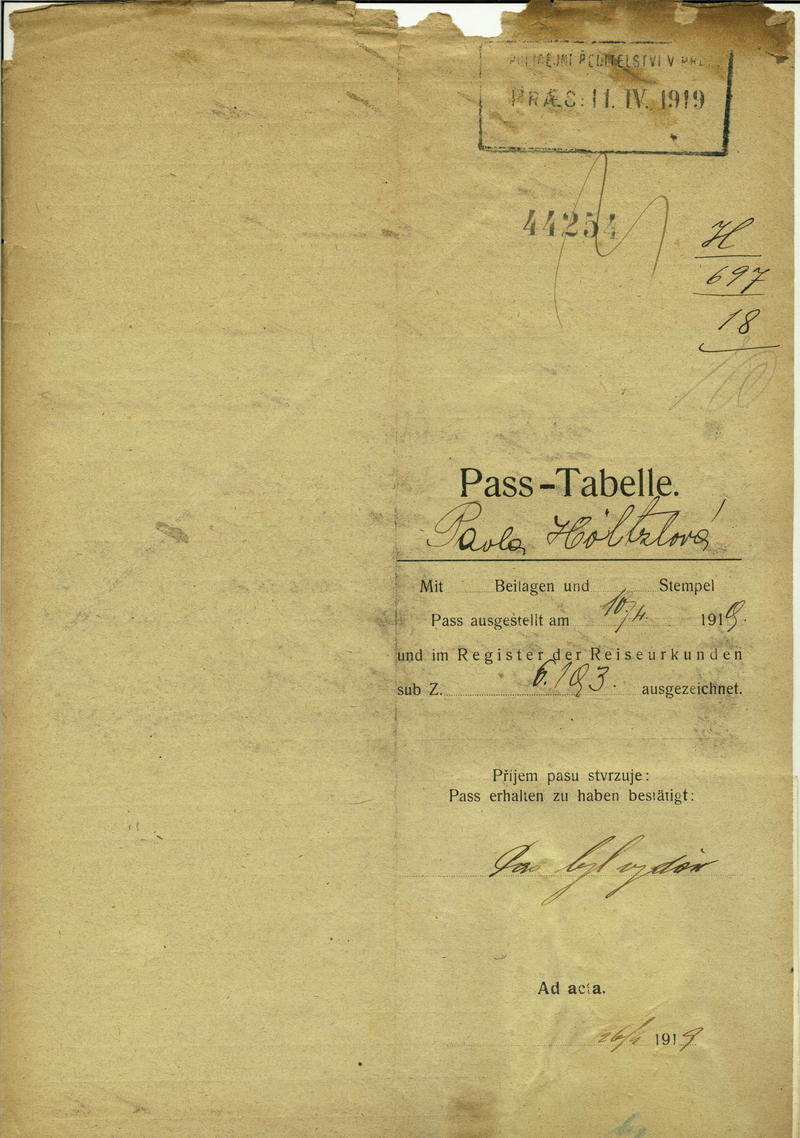 POLICEJNÍ ŘEDITELSTVÍ V
PRÆS: 11. IV. 1919
44254
H
697
18
Pass-Tabelle.
Pavla Höltzlová
Mit Beilagen und Stempel
Pass ausgestellt am 10/4. 1919.
und im Register der Reiseurkunden
sub Z. 6.193. ausgezeichnet.
Příjem pasu stvrzuje:
Pass erhalten zu haben bestätigt:
Pas byl vydán
Ad acta.
26/4 1919